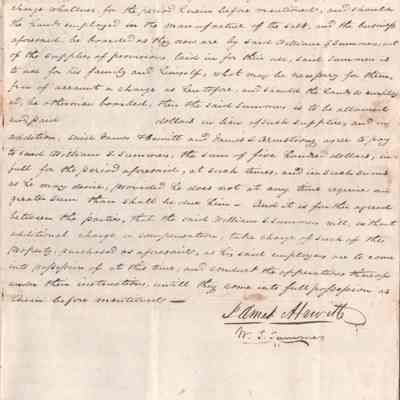 charge whatever for the period herein before mentioned, and should
the hands employed in the manufacture of the salt, and the business
aforesaid, be boarded as they now are by said William S Summers, out
of the supplies of provisions, laid in for their use, said Summers is
to use for his family and himself, what may be necessary for them,
free of account & charge as heretofore, and should the hands so employ
ed, be otherwise boarded, then the said Summers is to be allowed
and paid dollars in lieu of such supplies, and in
addition, said James Hewitt and James S. Armstrong agree to pay
to said William S. Summers, the sum of five hundred dollars, in
full for the period aforesaid, at such times, and in such sums
as he may desire, provided he does not at any time require an
greater sum than shall be due him. And it is further agreed
between the parties, that the said William S Summers will, without
additional charge or compensation, take charge of such of the
property, purchased as aforesaid, as his said employers are to come
into possession of at this time, and conduct the operations thereof
under their instructions, untill they come into full possession as
herein before mentioned —
James Hewitt
W. S. Summers